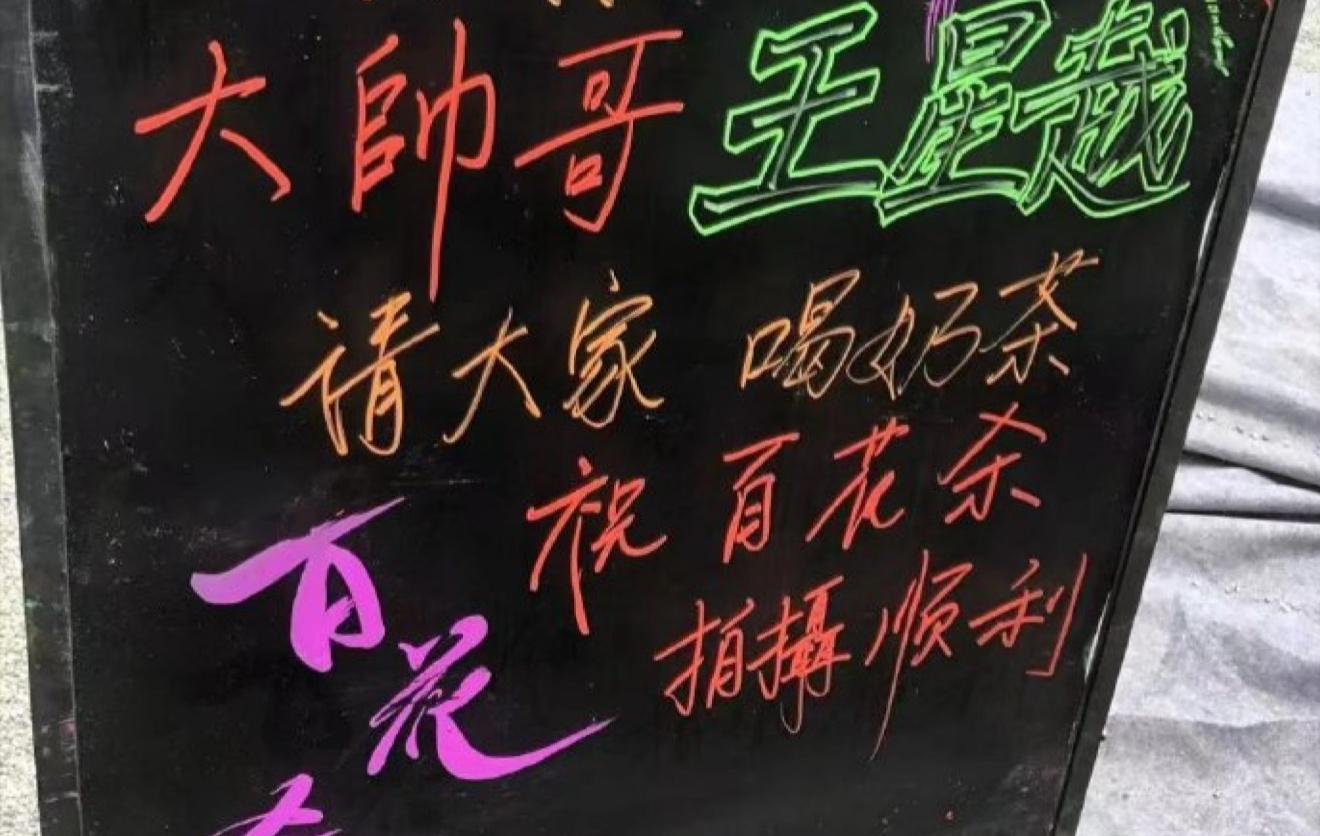 大帥哥 王星越
请大家 喝奶茶
祝 百花杀
拍攝顺利
百花